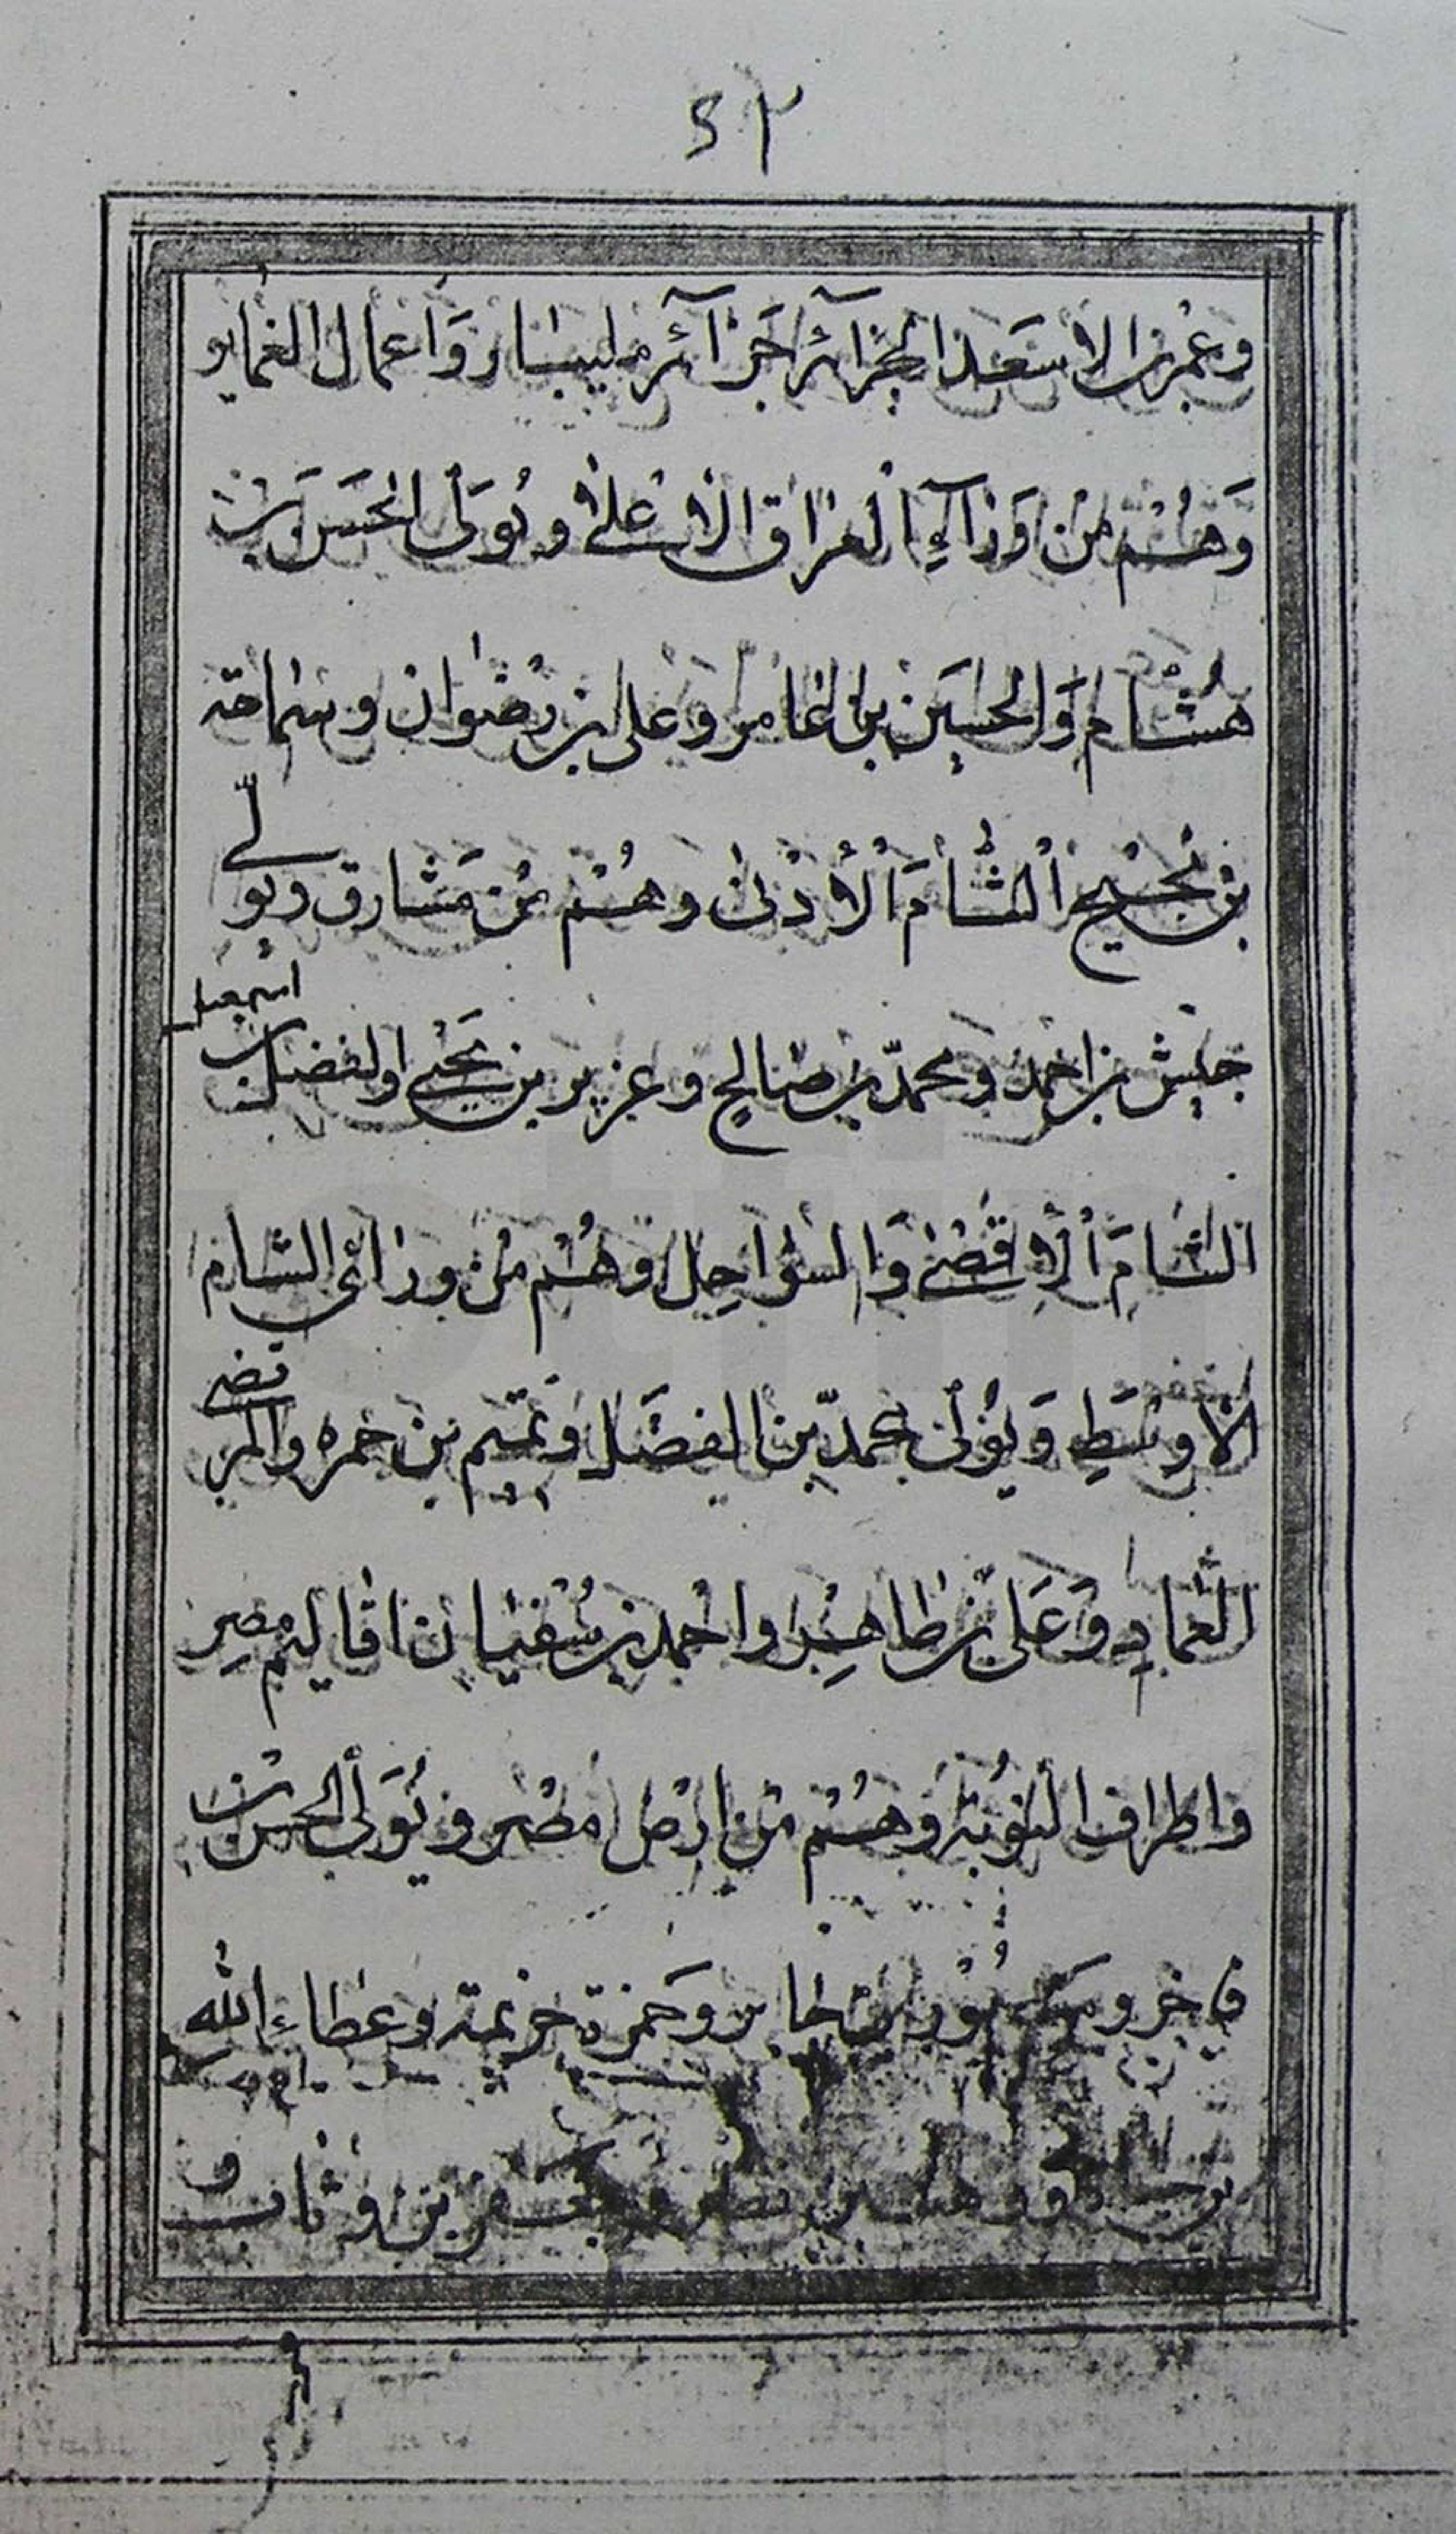 ٤٢
وعمر بن الاسعد الجزآئر جزآئر مليبار واعمال العماير
وَهُم من وَرآءِ العراق الاعلى ويُوَلى الحَسَن بن
هُشام وَالحسَين بن عامر وعلى بن رضوان وسماحة
بن بُجيح الشامَ الأدنى وهُم من مَشارق ويولى
جيش بن احمد ومحمّد بن صالح وعزيز بن يَحيى والفضل بن اسمعيل
الشامَ الاقصى وَالسواحِل وهُم من ورائى الشام
الاوسَطِ وَيُولى محمدّ بن الفضَل وتميم بن حمره والمرتضى
بن العماد وَعَلى بن طاهِر واحمد بن سُفيان اقاليم مصِر
واطراف النوبَة وهُم من ارض مصر ويُوَلى الحسن بن
فاخر و بن حامد وحَمزة خزيمة وعطاء الله
بن جعفر بن وثاب و